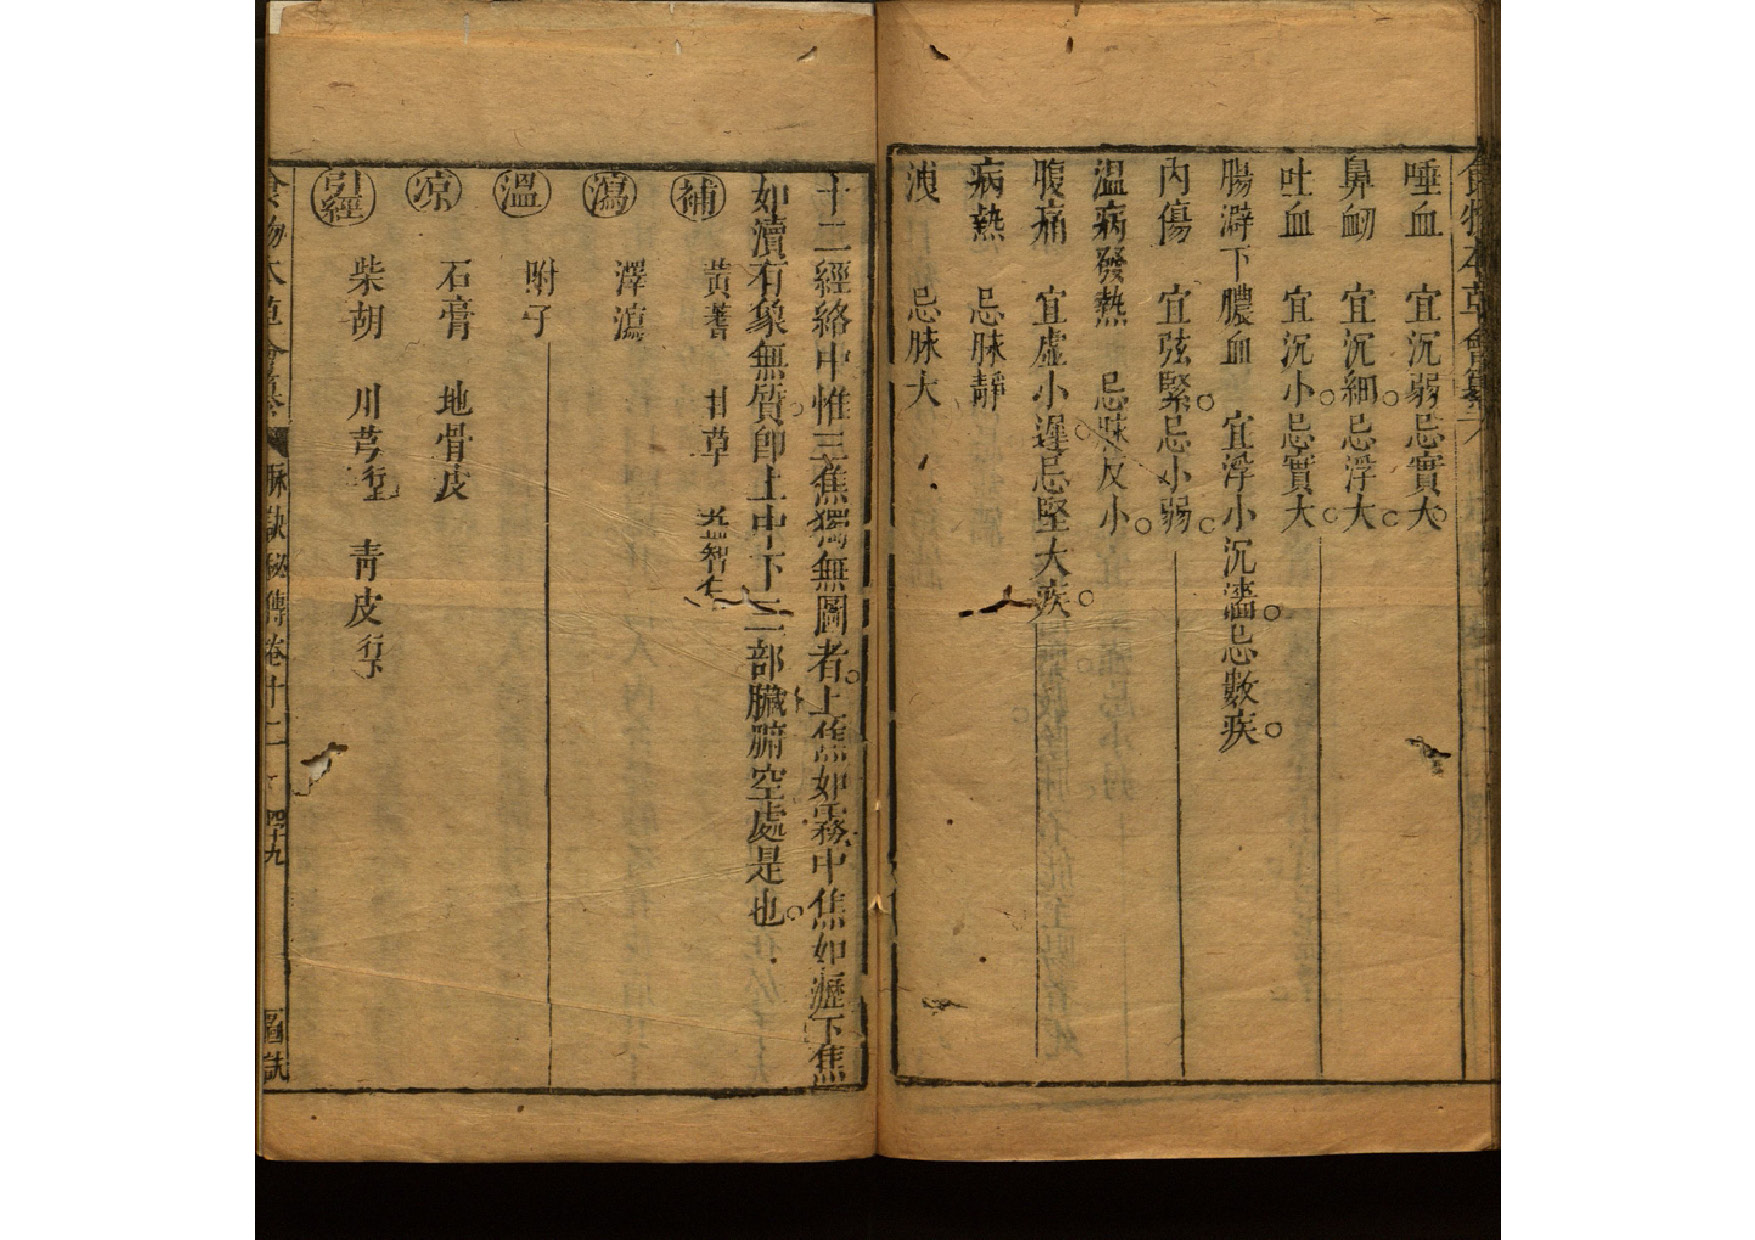 食物本草會纂
唾血　宜沉弱忌實大
鼻衂　宜沉細忌浮大
吐血　宜沉小忌實大
腸澼下膿血　宜浮小沉濇忌數疾
內傷　宜弦緊忌小弱
溫病發熱　忌脉反小
腹痛　宜虛小遲忌堅大疾
病熱　忌脉靜
洩　忌脉大
十二經絡中惟三焦獨無圖者上焦如霧中焦如瀝下焦
如瀆有象無質即上中下三部臟腑空處是也
補　黃蓍　甘草　益智仁
瀉　澤瀉
溫　附子
凉　石膏　地骨皮
引經　柴胡　川芎行上　靑皮行下
食物本草會纂　脉訣秘傳卷十二　四十九